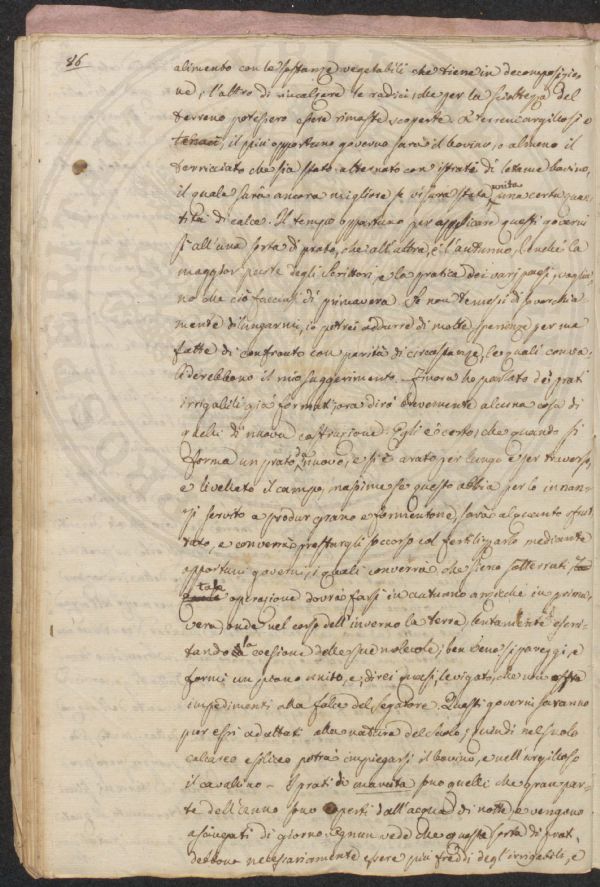 86
alimento con le sostanze vegetabili che tiene in decomposizio
ne, l'altro di rincalzare le radici, che per la scioltezza del
terreno potessero essere rimaste scoperte. A terreni argillosi e
tenaci, il più opportuno governo sarà il bovino, o almeno il
terricciato che sia stato alternato con istrati di letame bovino,
il quale sarà ancora migliore se vi sarà stata unita una certa quan
tità di calce. Il tempo opportuno per applicare questi governi
sì all'una sorta di prato, che all'altra, è l'autunno, benchè la
maggior parte degli Scrittori, e la pratica dei varj paesi, voglia
no che ciò facciasi di primavera. Se non temessi di soverchia
mente dilungarmi, io potrei addurre di molte sperienze per me
fatte di confronto con parità di circostanze, le quali conva
liderebbono il mio suggerimento. Finora ho parlato dei prati
irrigabili già formati, ora dirò brevemente alcuna cosa di
quelli di nuova costruzione. Egli è certo, che quando si
forma un prato da nuovo, e si è arato per lungo e per traverso,
e livellato il campo, massime se questo abbia per lo innan
zi servito a produr grano e formentone, sarà alquanto sfrut
tato, e converrà prestargli soccorso col fertilizzarlo mediante
opportuni governi, i quali converrà che sieno sotterrati.
tale operazione dovrà farsi in autunno anzichè in prima
vera, onde nel corso dell'inverno la terra, lentamente eserci
tando la coesione delle sue molecole, ben bene si pareggi, e
formi un piano unito, e, direi quasi, levigato, che non
impedimenti alla falce del segatore. Questi governi saranno
pur essi adattati alla natura del suolo; quindi nel suolo
calcareo e siliceo potrà impiegarsi il bovino, e nell'argilloso
il cavallino. I prati di marcita sono quelli che gran par
te dell'anno sono coperti dall'acqua di notte, e vengono
asciugati di giorno. Ognun vede che questa sorta di prati
debbono necessariamente essere più freddi degl'irrigabili, e